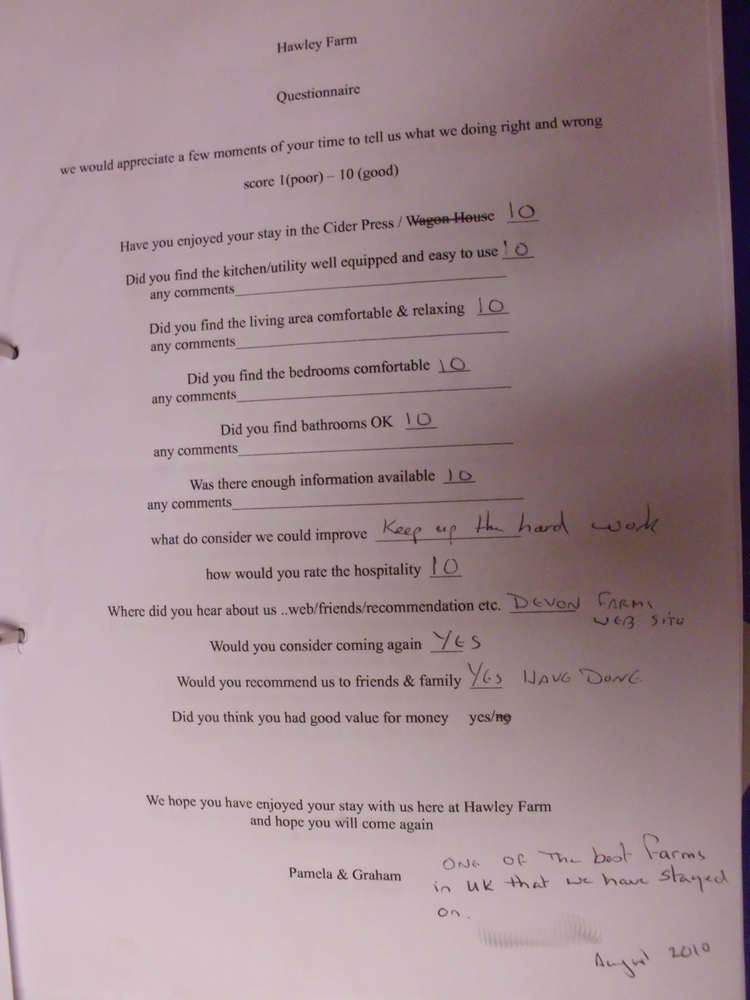 Hawley Farm
Questionnaire
we would appreciate a few moments of your time to tell us what we doing right and wrong
score 1(poor) – 10 (good)
Have you enjoyed your stay in the Cider Press / Wagon House 10
Did you find the kitchen/utility well equipped and easy to use 10
any comments
Did you find the living area comfortable & relaxing 10
any comments
Did you find the bedrooms comfortable 10
any comments
Did you find bathrooms OK 10
any comments
Was there enough information available 10
any comments
what do consider we could improve Keep up the hard work
how would you rate the hospitality 10
Where did you hear about us ..web/friends/recommendation etc. DEVON FARMS
WEB SITE
Would you consider coming again YES
Would you recommend us to friends & family YES HAVE DONE
Did you think you had good value for money yes/no
We hope you have enjoyed your stay with us here at Hawley Farm
and hope you will come again
Pamela & Graham
ONE OF The best Farms
in UK that we have stayed
on.
August 2010